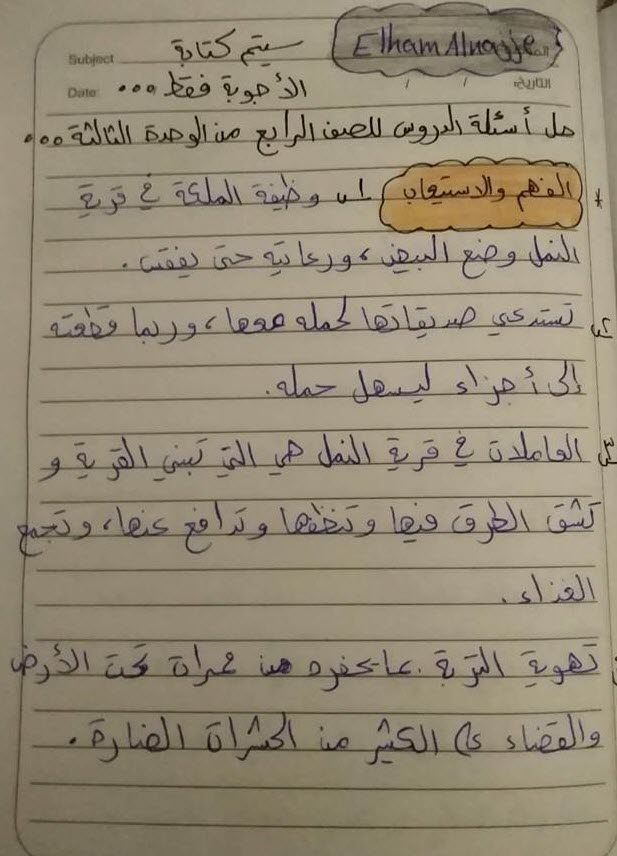 Subject سيتم كتابة Elham Alnajje
Date: الأجوبة فقط ... / / التاريخ
حل أسئلة الدروس للصف الرابع من الوحدة الثالثة ...
* الفهم والاستيعاب س١ وظيفة الملكة في قرية
النمل وضع البيض، ورعايته حتى يفقس.
س٢ تستدعي صديقاتها لحمله معها، وربما قطعته
إلى أجزاء ليسهل حمله.
س٣ العاملات في قرية النمل هي التي تبني القرية و
تشق الطرق فيها وتنظفها وتدافع عنها، وتجمع
الغذاء.
تهوية التربة بما تحفره من ممرات تحت الأرض
والقضاء على الكثير من الحشرات الضارة.